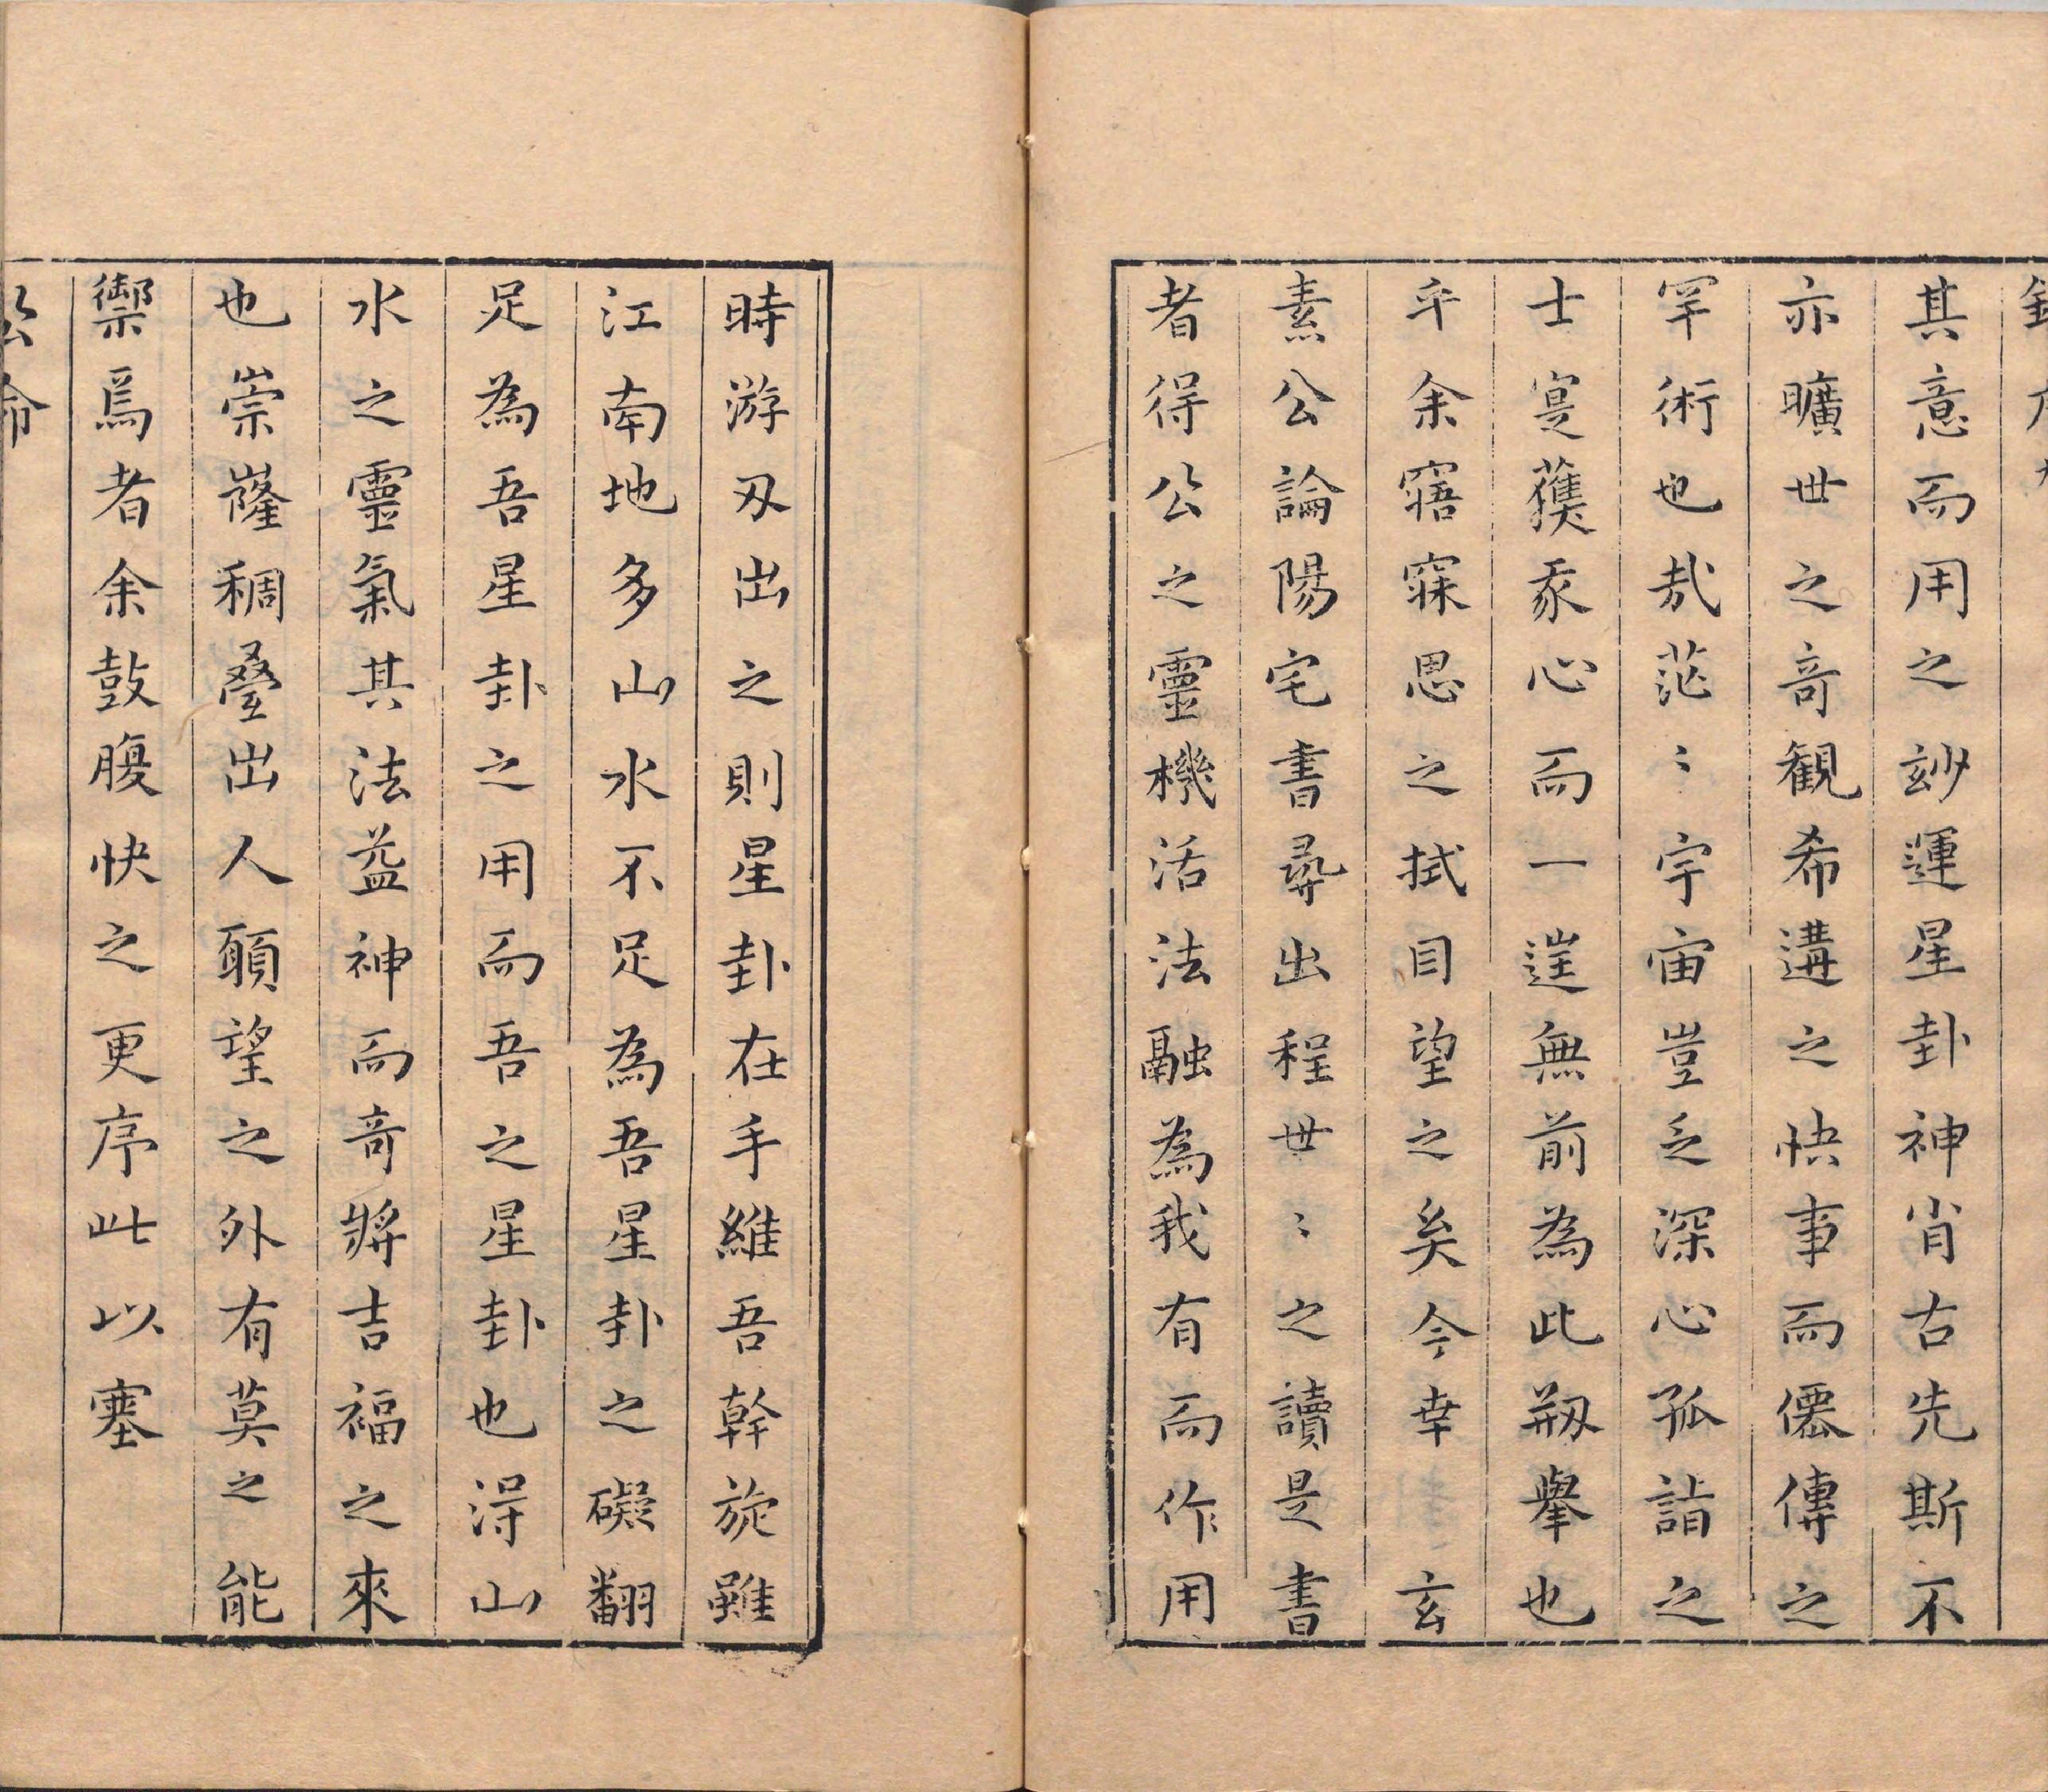 其意而用之玅運星卦神肖古先斯不
亦曠世之竒觀希遘之快事而僊傳之
罕術也㢤茫〻宇宙豈乏深心孤詣之
士寔蒦豖心而一遑無前為此刱舉也
乎余寤寐思之拭目望之矣今幸玄
素公論陽宅書尋出程世〻之讀是書
者得公之靈機活法融為我有而作用
時游刃出之則星卦在手維吾幹旋雖
江南地多山水不足為吾星卦之礙翻
足為吾星卦之用而吾之星卦也淂山
水之靈氣其法益神而竒將吉福之來
也崇嶐稠疊出人願望之外有莫之能
禦焉者余鼓腹快之更序此以塞
公命